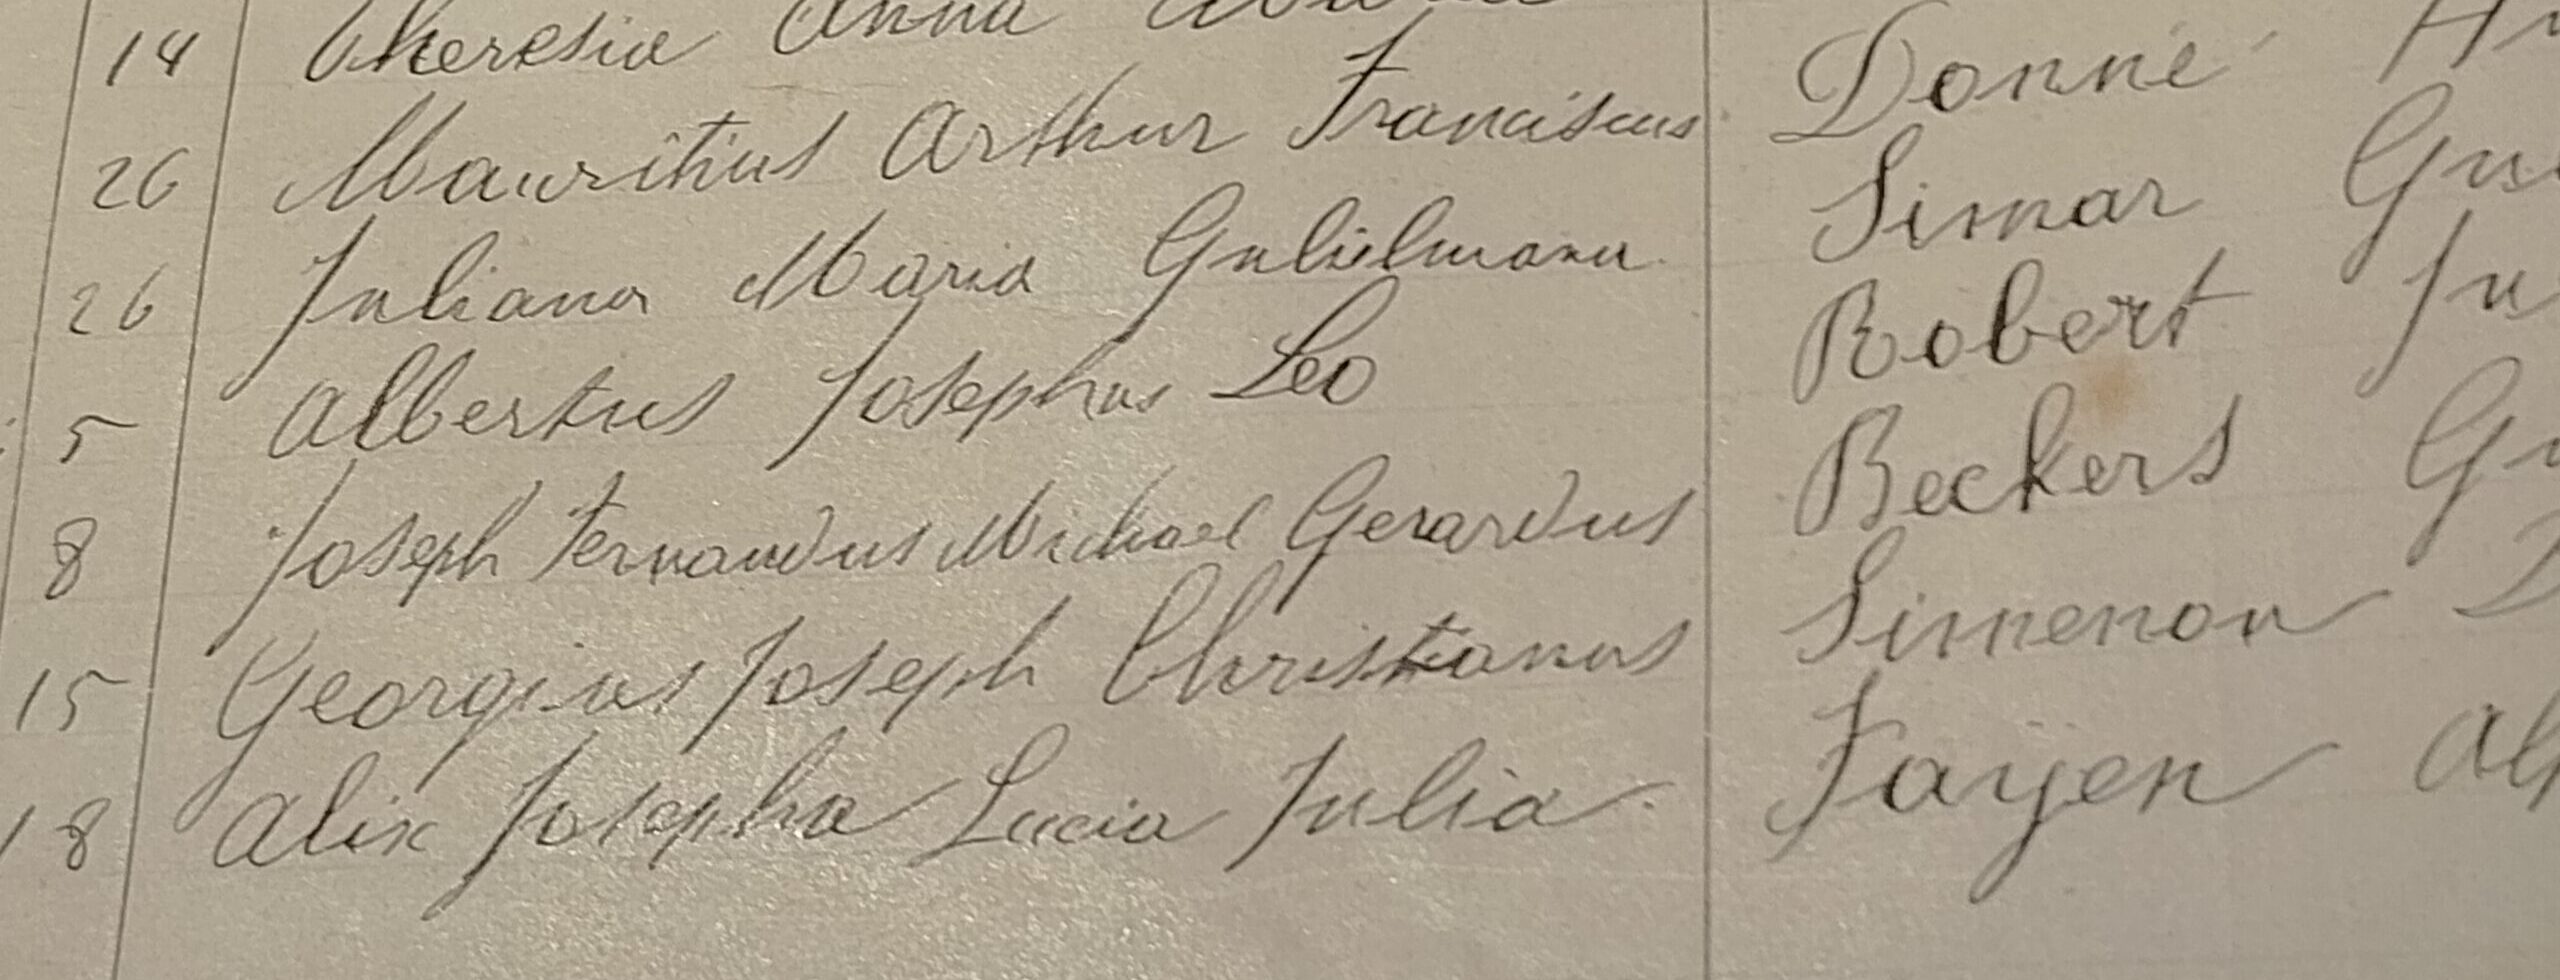 14 Theresia Anna Donné
26 Mauritius Arthur Franciscus Simar
26 Juliana Maria Robert
5 Albertus Josephus Leo Beckers
8 Joseph Fernandus Michael Gerardus Simenon
15 Georgius Joseph Christianus Fayen
18 Alix Josepha Lucia Julia